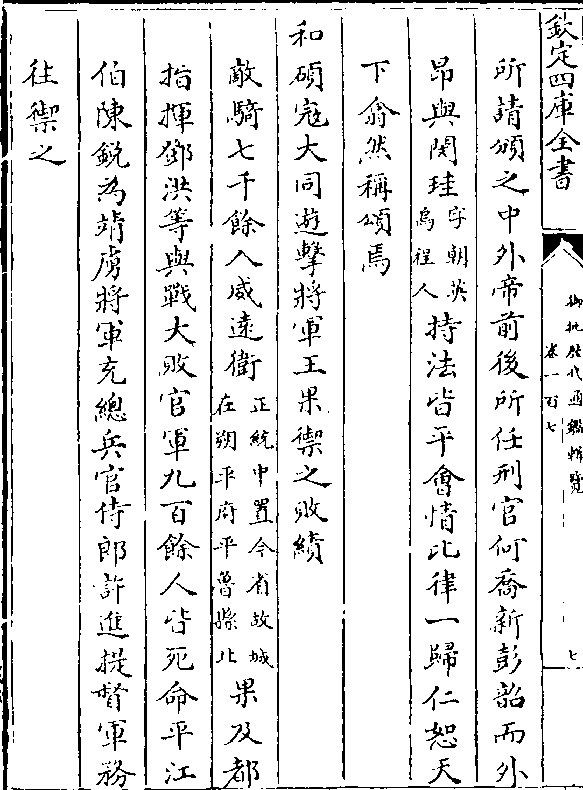 欽定四庫全書
御批歴代通鑑輯覽
卷一百七
七
所請頒之中外帝前後所任刑官何喬新彭韶而外
昂與閔珪字朝瑛烏程人持法皆平會情比律一歸仁恕天
下翕然稱頌焉
和碩寇大同遊擊將軍王杲禦之敗績
敵騎七千餘入威遠衛正統中置今省故城在朔平府平魯縣北杲及都
指揮鄧洪等與戰大敗官軍九百餘人皆死命平江
伯陳鋭為靖虜將軍充總兵官侍郎許進提督軍務
往禦之